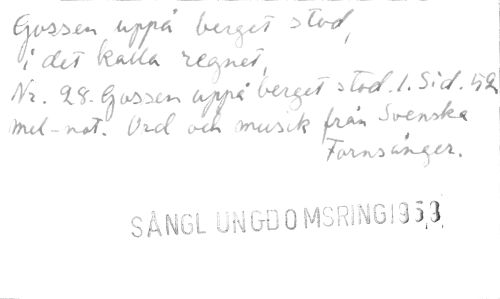 Gossen uppå berget stod,
i det kalla regnet,
Nr. 28. Gossen uppå berget stod. 1. Sid. 52
mel-not. Ord och musik från Svenska
Fornsånger.
SÅNGL UNGDOMSRING 1953